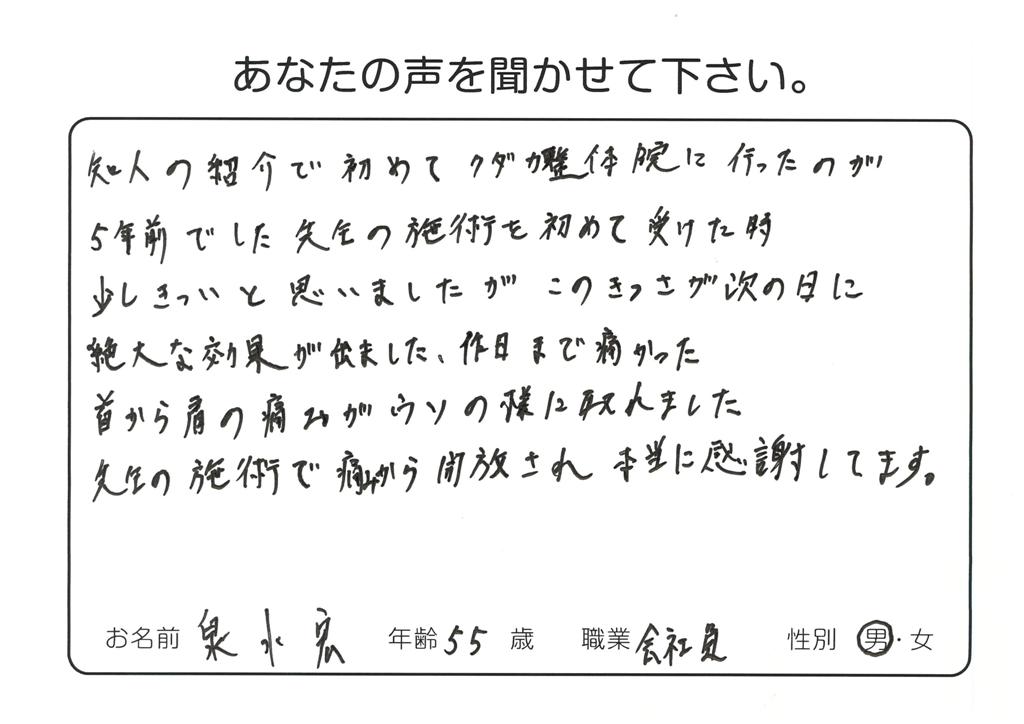 あなたの声を聞かせて下さい。
知人の紹介で初めてクダカ整体院に行ったのが
5年前でした 先生の施術を初めて受けた時
少しきついと思いましたが このきつさが次の日に
絶大な効果が出ました、昨日まで痛かった
首から肩の痛みがウソの様に取れました
先生の施術で痛みから開放され 本当に感謝してます。
お名前 泉水 宏 年齢 55 歳 職業 会社員 性別 男・女